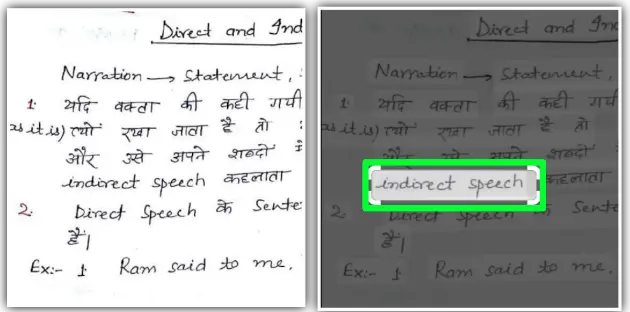 Direct and Ind
Narration → Statement,
1. यदि वक्ता की कही गयी
as it is) त्यों रखा जाता है तो
और उसे अपने शब्दों
indirect speech कहलाता
2. Direct Speech के Sente
है।
Ex:- 1. Ram said to me,
Direct and Ind
Narration → Statement,
1. यदि वक्ता की कही गयी
as it is) त्यों रखा जाता है तो
और उसे अपने शब्दों
indirect speech कहलाता
2. Direct Speech के Sente
है।
Ex:- 1. Ram said to me,